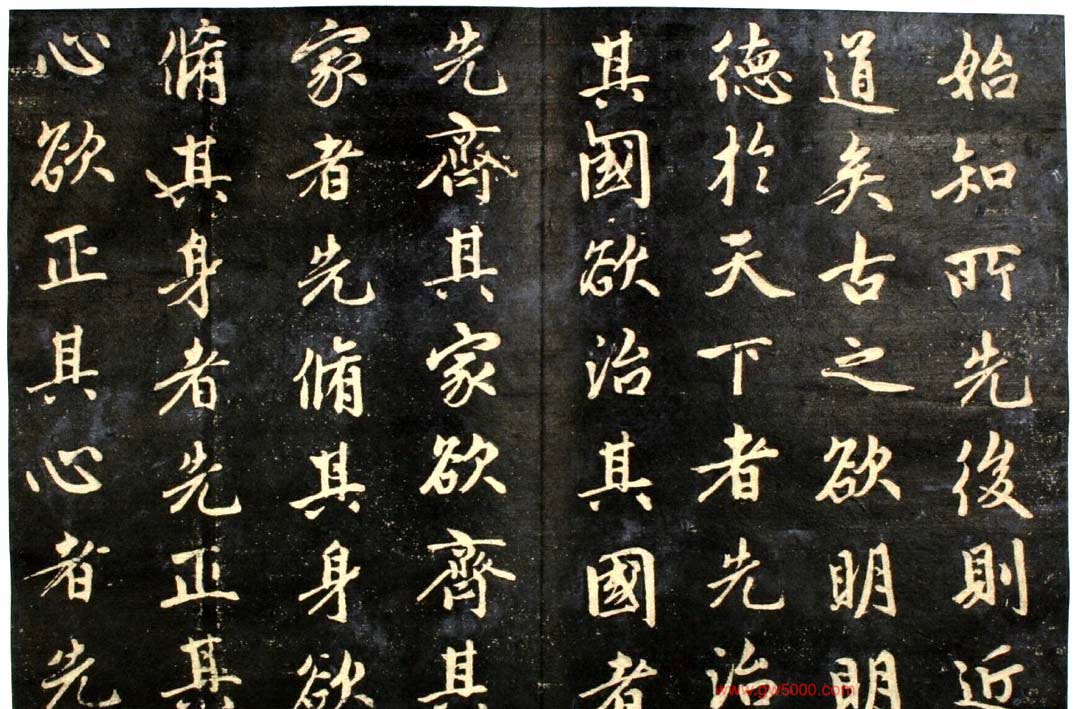 始知所先後則近
道矣古之欲明明
德於天下者先治
其國欲治其國者
先齊其家欲齊其
家者先脩其身欲
脩其身者先正其
心欲正其心者先
www.gw5000.com